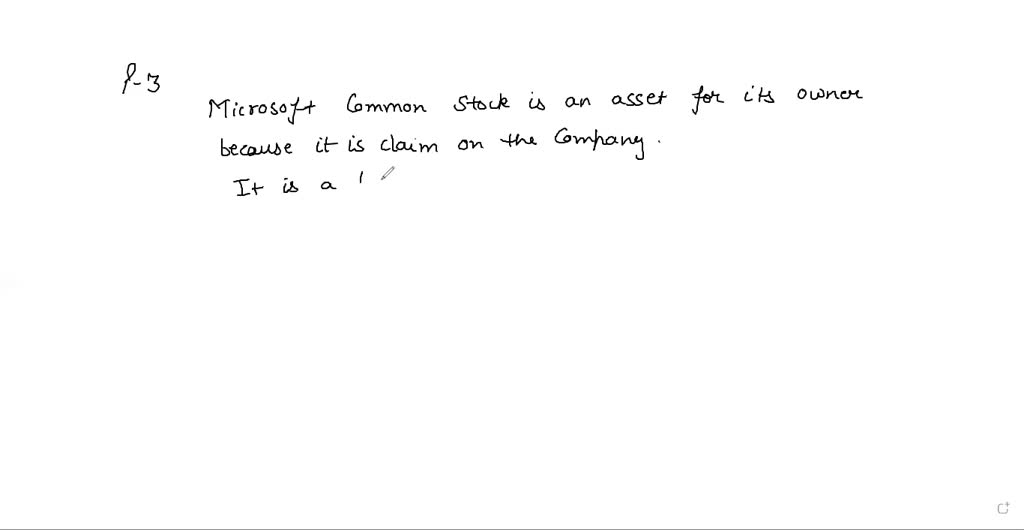 P-3
Microsoft Common Stock is an asset for its owner
because it is claim on the Company.
It is a